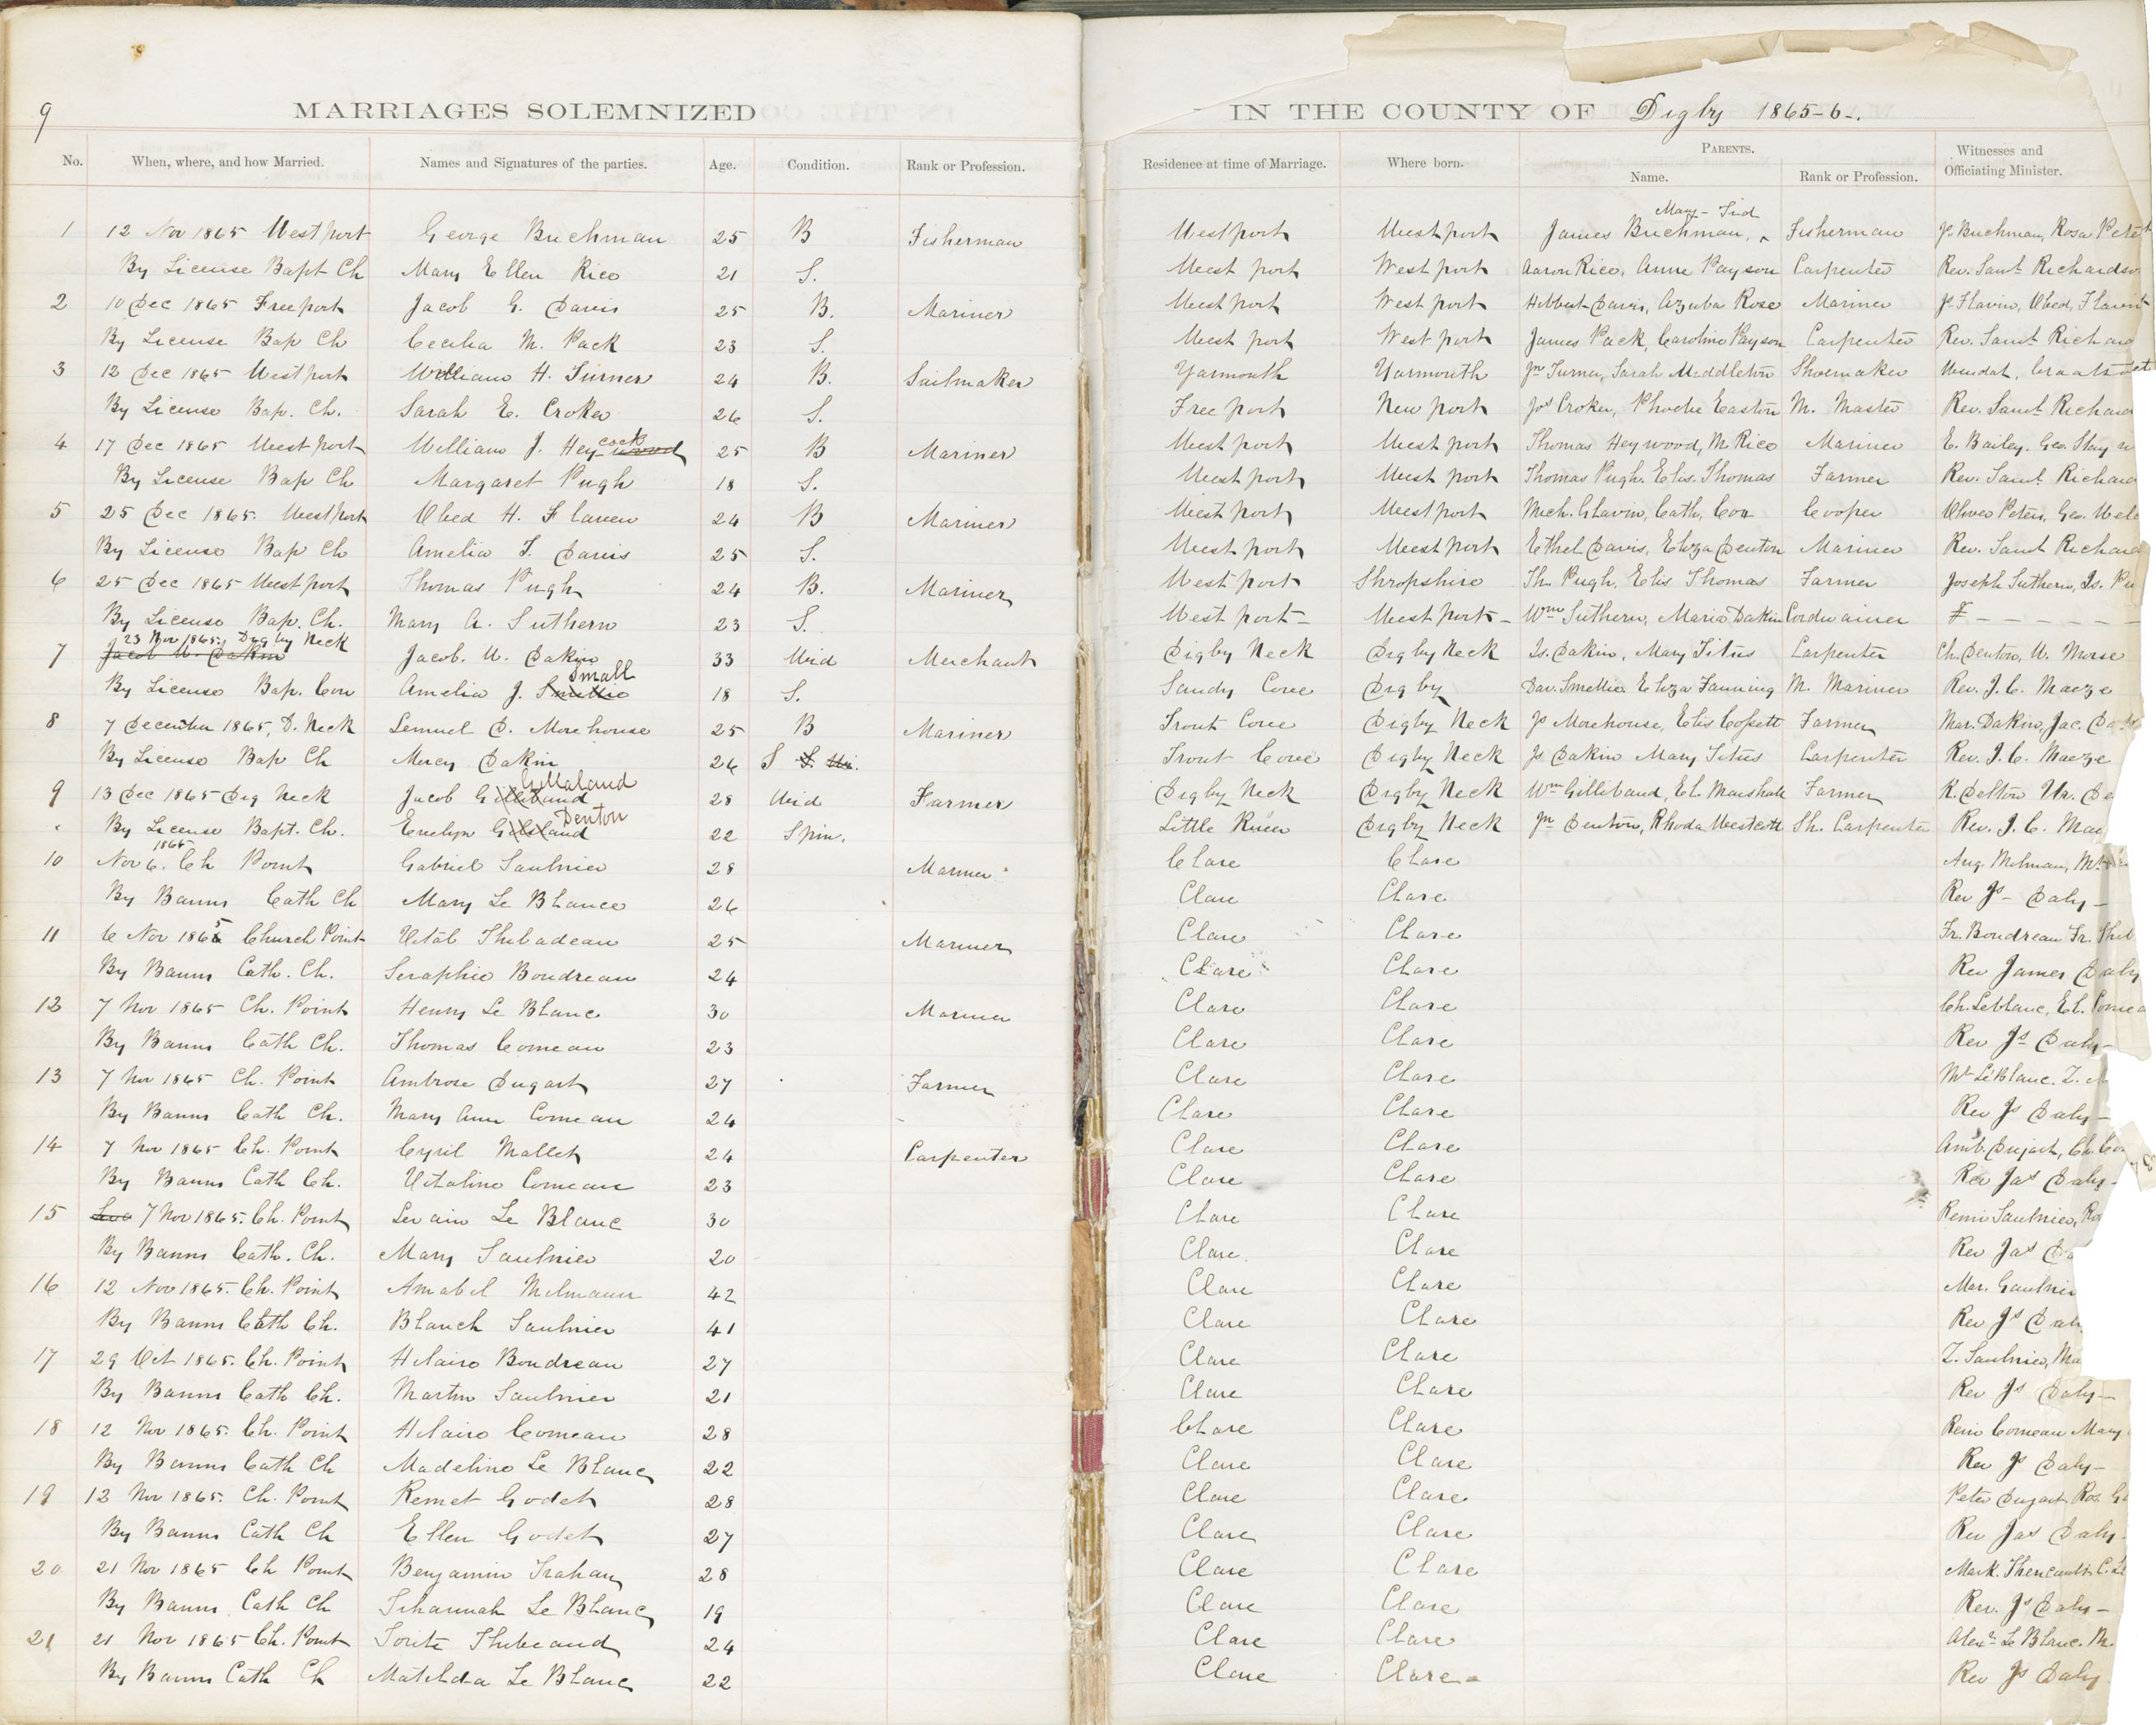 9
MARRIAGES SOLEMNIZED IN THE COUNTY OF Digby 1865-6-.
No. When, where, and how Married. Names and Signatures of the parties. Age. Condition. Rank or Profession. Residence at time of Marriage. Where born. PARENTS. Witnesses and
Name. Rank or Profession. Officiating Minister.
Mary - Tid
1 12 Nov 1865 Westport George Buchman 25 B Fisherman Westport Westport James Buchman, Fisherman Js Buchman, Rosa
By License Bapt Ch Mary Ellen Rico 21 S. West port West port Aaron Rico, Anne Payson Carpenter Rev. Saml Richardso
2 10 Dec 1865 Freeport Jacob G. Davis 25 B. Mariner West port West port Hibbert Davis, Azuba Rose Mariner Js Flavin, Obed, Flavin
By License Bap Ch Cecilia M. Pack 23 S. West port West port James Pack, Caroline Payson Carpenter Rev. Saml Richard
3 12 Dec 1865 Westport William H. Turner 24 B. Sailmaker Yarmouth Yarmouth Jn Turner, Sarah Middleton Shoemaker
By License Bap. Ch. Sarah E. Croker 26 S. Free port New port Jos Croker, Phoebe Easton M. Master Rev. Saml Richard
cock
4 17 Dec 1865 West port William J. Heywood 25 B Mariner West port West port Thomas Heywood, M. Rico Mariner E. Bailey. Geo.
By License Bap Ch Margaret Pugh 18 S. West port West port Thomas Pugh. Elis. Thomas Farmer Rev. Saml. Richard
5 25 Dec 1865. Westport Obed H. Flaven 24 B Mariner West port Westport Mich. Glavin, Cath, Cox Cooper Oliver Peters, Geo. Welc
By License Bap Ch Amelia T. Davis 25 S. West port West port Ethel Davis, Eliza Denton Mariner Rev. Saml Richard
6 25 Dec 1865 West port Thomas Pugh 24 B. Mariner West port Shropshire Th. Pugh. Elis Thomas Farmer Joseph Suthern, Is. Pu
By License Bap. Ch. Mary A. Suthern 23 S. West port - West port - Wm Suthern, Maria Dakin Cordwainer
23 Nov 1865, Digby Neck
7 Jacob U. Dakin Jacob. U. Dakin 33 Wid Merchant Digby Neck Digby Neck Is. Dakin, Mary Titus Carpenter Ch. Denton, W. Morse
Small
By License Bap. Con Amelia J. Smellie 18 S. Sandy Cove Digby Dav. Smellie Eliza Fanning M. Mariner Rev. J. C. Morze
8 7 December 1865, D. Neck Lemuel D. Morehouse 25 B Mariner Trout Cove Digby Neck Js Morehouse, Elis Cossett Farmer Mar. Dakin, Jac.
By License Bap Ch Mercy Dakin 26 S S. Wi. Trout Cove Digby Neck Js Dakin Mary Titus Carpenter Rev. J. C. Morze
Gillaland
9 13 Dec 1865 Dig Neck Jacob Gilliband 28 Wid Farmer Digby Neck Digby Neck Wm Gilliband, El. Marshall Farmer
Denton
By License Bapt. Ch. Evelyn Gilsland 22 Spin. Little River Digby Neck Jn Denton, Rhoda Westcott Sh. Carpenter Rev. J. C. Mor
1865
10 Nov 6. Ch Point Gabriel Saulnier 28 Mariner Clare Clare Aug. Melman,
By Banns Cath Ch Mary Le Blance 26 Clare Clare Rev Js - Daly -
11 6 Nov 1865 Church Point Vitâl Thibadeau 25 Mariner Clare Clare Fr. Boudreau Fr. Thib
By Banns Cath. Ch. Seraphie Boudreau 24 Clare Clare Rev James Daly
12 7 Nov 1865 Ch. Point Henry Le Blanc 30 Mariner Clare Clare Ch. Leblanc, El. Comea
By Banns Cath Ch. Thomas Comeau 23 Clare Clare Rev Js Daly -
13 7 Nov 1865 Ch. Point Ambrose Dugast 27 Farmer Clare Clare Mt LeBlanc.
By Banns Cath Ch. Mary Ann Comeau 24 Clare Clare Rev Js Daly -
14 7 Nov 1865 Ch. Point Cyril Mallet 24 Carpenter Clare Clare Amb. Dugast, Ch. Co
By Banns Cath Ch. Vitaline Comeau 23 Clare Clare Rev Jas Daly -
15 7 Nov 1865. Ch. Point Levain Le Blanc 30 Clare Clare Remi Saulnier, Ro
By Banns Cath. Ch. Mary Saulnier 20 Clare Clare Rev Jas Da
16 12 Nov 1865. Ch. Point Amabel Melmaun 42 Clare Clare Mar. Gaulnie
By Banns Cath Ch. Blanch Saulnier 41 Clare Clare Rev Js Daly
17 29 Oct 1865. Ch. Point Hilairo Boudreau 27 Clare Clare Z. Saulnier, Ma
By Banns Cath Ch. Martin Saulnier 21 Clare Clare Rev Js Daly -
18 12 Nov 1865. Ch. Point Hilairo Comeau 28 Clare Clare Remi Comeau Mary
By Banns Cath Ch Madeline Le Blanc 22 Clare Clare Rev Js Daly -
19 12 Nov 1865. Ch. Point Remet Godet 28 Clare Clare Peter Dugast Ros. G
By Banns Cath Ch Ellen Godet 27 Clare Clare Rev Jas Daly -
20 21 Nov 1865 Ch Point Benjamin Trahan 28 Clare Clare Mark. C. Le
By Banns Cath Ch Sehannah Le Blanc 19 Clare Clare Rev. Js Daly -
21 21 Nov 1865 Ch. Point Thibeaud 24 Clare Clare Alexr Le Blanc. M.
By Banns Cath Ch Matilda Le Blanc 22 Clare Clare - Rev Js Daly